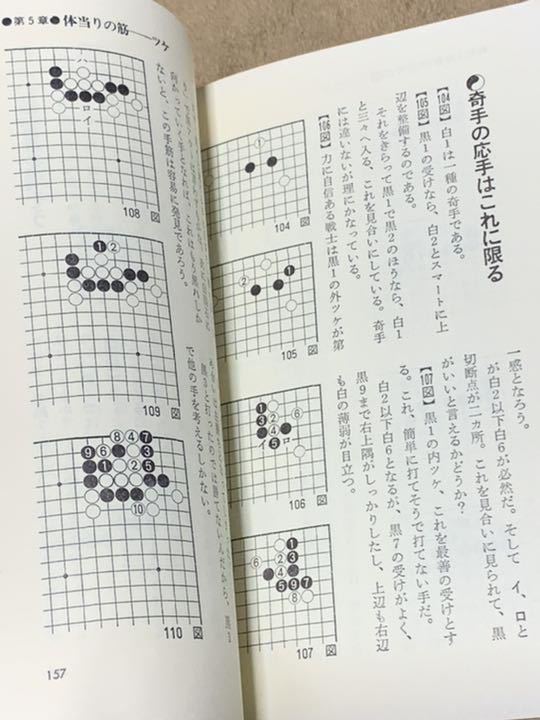 奇手の応手はこれに限る
【104図】白1は一種の奇手である。
【105図】黒1の受けなら、白2とスマートに上
辺を整備するのである。
それをきらって黒1で黒2のほうなら、白1
と三々へ入る、これを見合いにしている。奇手
には違いないが理にかなっている。
【106図】力に自信ある戦士は黒1の外ツケが第
一感となろう。
が白2以下白6が必然だ。そして イ、ロと
切断点が二ヵ所。これを見合いに見られて、黒
がいいと言えるかどうか？
【107図】黒1の内ツケ、これを最善の受けとす
る。これ、簡単に打てそうで打てない手だ。
白2以下白6となるが、黒7の受けがよく、
黒9まで右上隅がしっかりしたし、上辺も右辺
も白の薄弱が目立つ。
①
104 図
❶
②
105 図
❶
❸
②
⑥
❺
④
イ
ロ
106 図
❶
②
❸
④
❺
⑥
❼
⑧
❾
107 図
●第5章● 体当りの筋——ツケ
向かっていく手となれば、これはもう照れしか
ないと、この手筋は容易に発見であろう。
で他の手を考えるしかない。
ハ
ロ
イ
108 図
❶
②
109 図
⑧
④
❼
❾
❻
②
❶
❸
❺
⑩
110 図
157